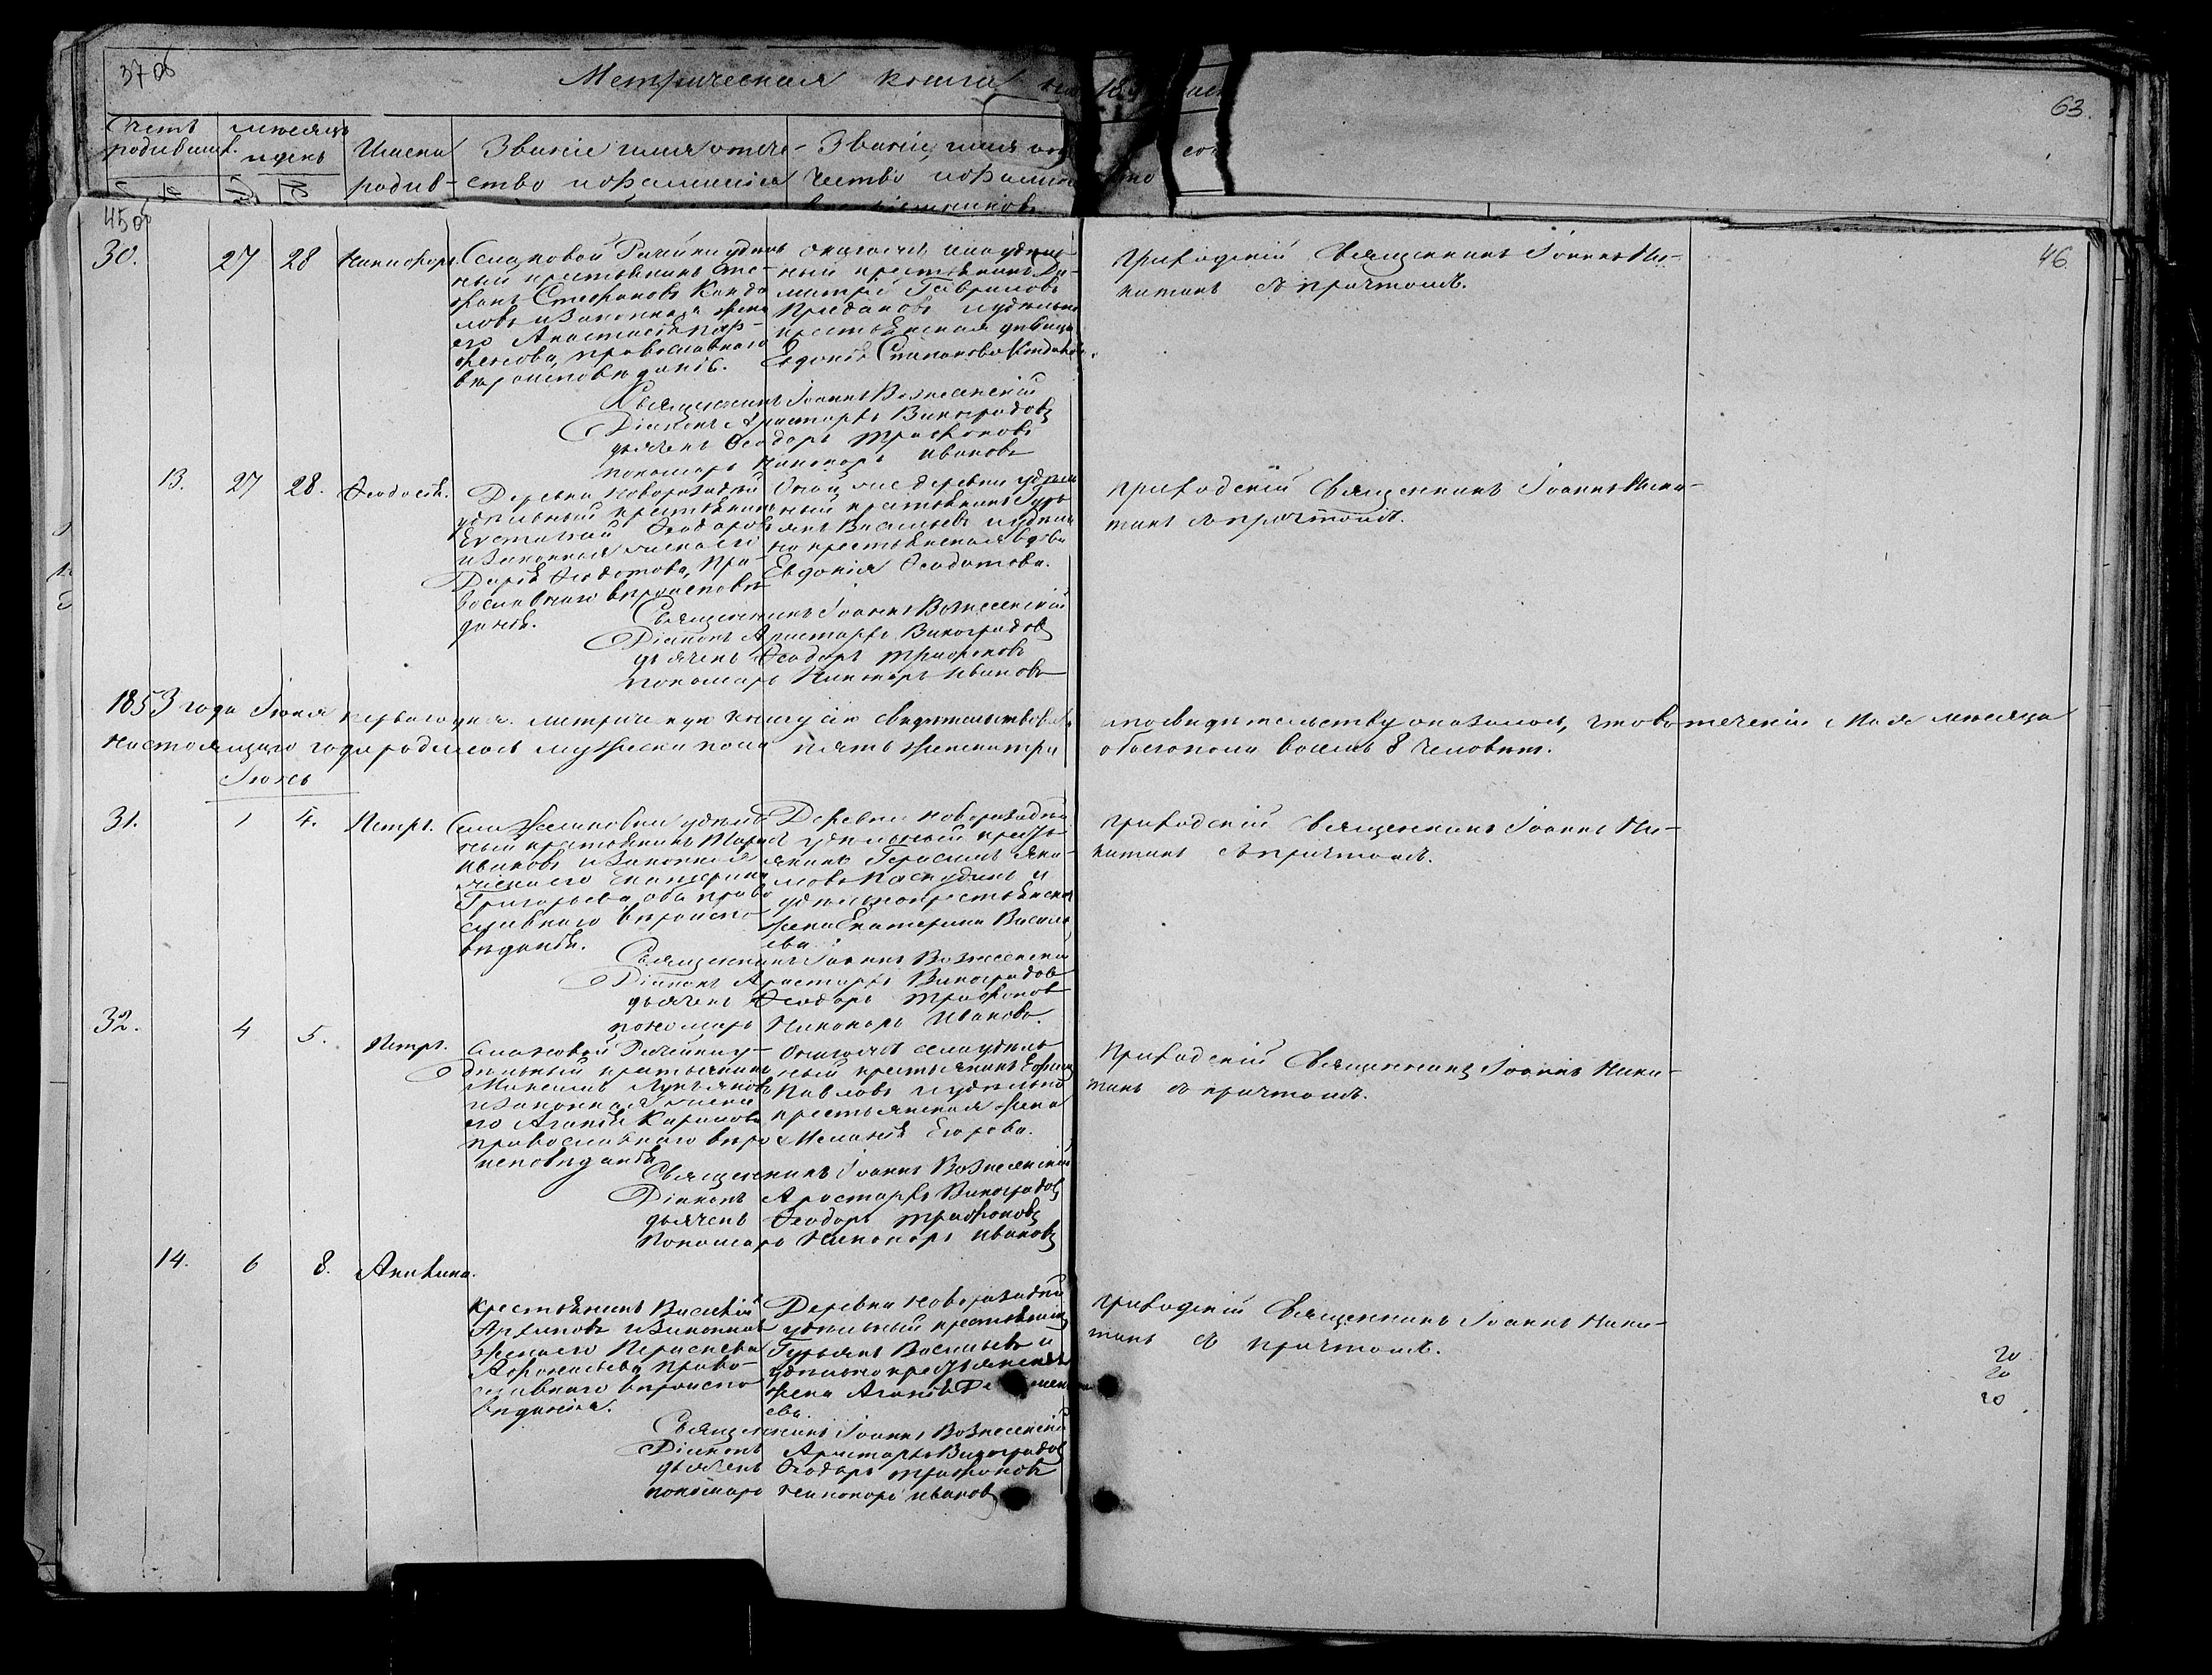 37 об
Метрическая книга на 18
63.
Счетъ родившихся.
мѣсяцъ и день
Имена родив-
Званіе имя отче-
ство и фамилія
Званіе, имя
чество и фамилія
45 об
46.
30. 27 28 Никифоръ.
Села Новой Рачейки удѣль
ный крестьянинъ Сте-
фанъ Стефановъ Канда
ловъ и Законная жена
его Анастасія Пар-
фенова, православнаго
вѣроисповѣданія.
онагоже села удѣль
ный крестьянинъ Ди-
митрій Гавриловъ
и удѣльно
крестьянская дѣвица
Евдокія Степанова
Приходскій Священникъ Іоаннъ Ни-
китинъ съ причтомъ.
Священникъ Іоаннъ Вознесенскій
Діаконъ Аристархъ Виноградовъ
дьячекъ Ѳеодоръ Трифоновъ
пономарь Никаноръ Ивановъ
13. 27 28. Ѳеодосія.
Деревни Новоразадѣй
удѣльный крестьянинъ
Евстигней Ѳеодоровъ
и Законная жена его
Дарія Ѳеодотова, Пра-
вославнаго вѣроисповѣ
данія.
Оной же деревни удѣль
ный крестьянинъ Гурь
янъ Васильевъ и удѣль
но крестьянская вдова
Евдокія Ѳеодотова.
приходскій Священникъ Іоаннъ Ники-
тинъ съ причтомъ.
Священникъ Іоаннъ Вознесенскій
Діаконъ Аристархъ Виноградовъ
дьячекъ Ѳеодоръ Трифоновъ
пономарь Никаноръ Ивановъ
1853 года Іюня перваго дня. метрическую книгу сію свидѣтельствовали
по свидѣтельству оказалось, что въ теченіи Мая мѣсяца
Настоящаго года родилось мужеска пола пять женска три
обоего пола восемь 8 человѣкъ.
Іюнь
31. 1 4. Петръ.
Села удѣль
ный крестьянинъ
Ивановъ и Законная
жена его Екатерина
Григорьева, оба право
славнаго вѣроиспо
вѣданія.
Деревни Новоразадѣй
удѣльный кресть
янинъ Герасимъ Яки-
мовъ и
удѣльнокрестьянская
жена Екатерина Василь
ева
приходскій Священникъ Іоаннъ Ни-
китинъ съ причтомъ.
Священникъ Іоаннъ Вознесенскій
Діаконъ Аристархъ Виноградовъ
дьячекъ Ѳеодоръ Трифоновъ
пономарь Никаноръ Ивановъ.
32. 4 5. Петръ.
Села Новой Рачейки у-
дѣльный крестьянинъ
Максимъ Лукьяновъ
и Законная жена
его Агафія Карпова
православнаго вѣро
исповѣданія
Онагоже села удѣль
ный крестьянинъ Ефимъ
Павловъ и удѣльно
крестьянская жена
Меланія Егорова.
Приходскій Священникъ Іоаннъ Ники-
тинъ съ причтомъ.
Священникъ Іоаннъ Вознесенскій
Діаконъ Аристархъ Виноградовъ
дьячекъ Ѳеодоръ Трифоновъ
Пономарь Никаноръ Ивановъ
14. 6 8. Акилина.
крестьянинъ Василій
Архиповъ и Законная
жена его Параскева
Афанасьева право-
славнаго вѣроиспо
вѣданія.
Деревни Новоразадѣй
удѣльный крестьянинъ
Гурьянъ Васильевъ и
удѣльно крестьянская
жена Агафія
ева.
приходскій Священникъ Іоаннъ Ники-
тинъ съ причтомъ.
20
20
20
Священникъ Іоаннъ Вознесенскій
Діаконъ Аристархъ Виноградовъ
дьячекъ Ѳеодоръ Трифоновъ
пономарь Никаноръ Ивановъ